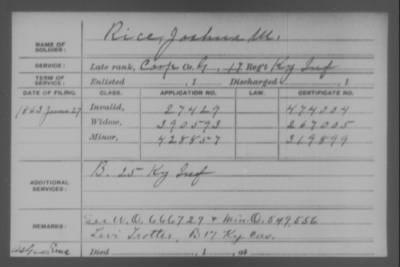 NAME OF SOLDIER: Rice, Joshua M.
SERVICE: Late rank, Corp Co. G, 17 Reg't Ky Inf
TERM OF SERVICE: Enlisted , 1 Discharged , 1
DATE OF FILING. CLASS. APPLICATION NO. LAW. CERTIFICATE NO.
1863 June 27 Invalid, 27429 474004
Widow, 390593 267005
Minor, 428857 319899
ADDITIONAL SERVICES: B. 25 Ky Inf
REMARKS: See W.O. 666729 & Min. O. 549,556
Levi Trotter, B 17 Ky Cav.
Died , 1 , at